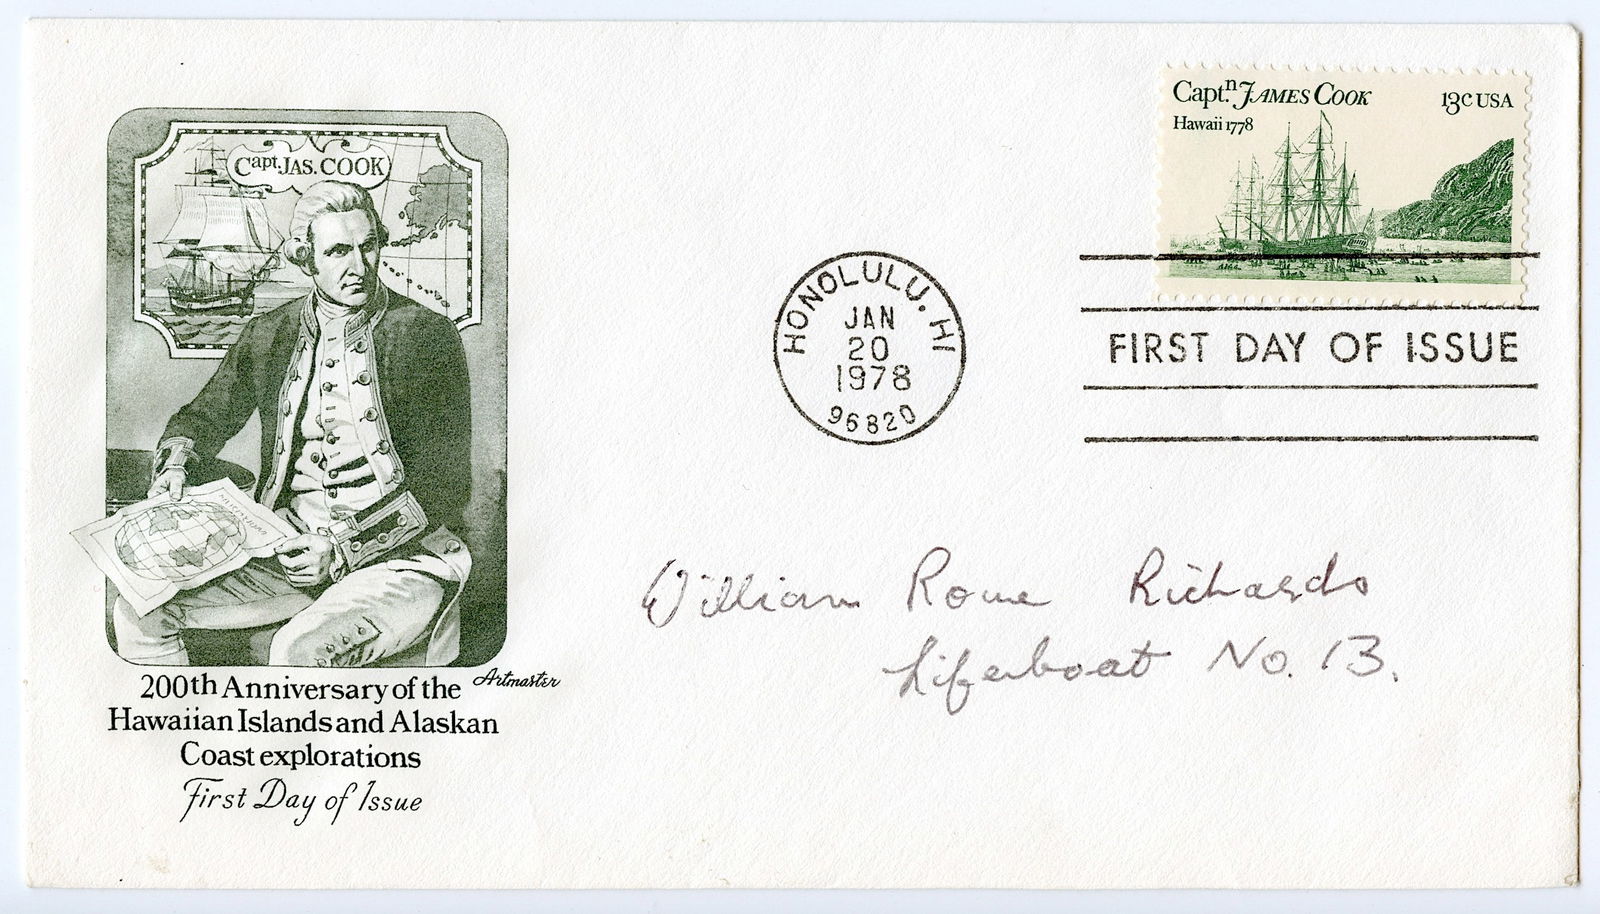 Capt. JAS. COOK
200th Anniversary of the
Hawaiian Islands and Alaskan
Coast explorations
First Day of Issue
Artmaster
Capt.n JAMES COOK 13c USA
Hawaii 1778
HONOLULU, HI
JAN
20
1978
96820
FIRST DAY OF ISSUE
William Rowe Richards
Lifeboat No. 13.